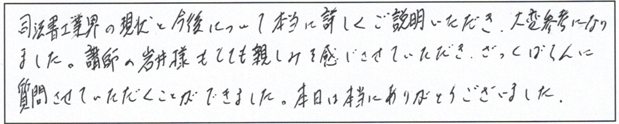 司法書士業界の現状と今後について本当に詳しくご説明いただき、大変参考になり
ました。講師の岩井様もとても親しみを感じさせていただき、ざっくばらんに
質問させていただくことができました。本日は本当にありがとうございました。